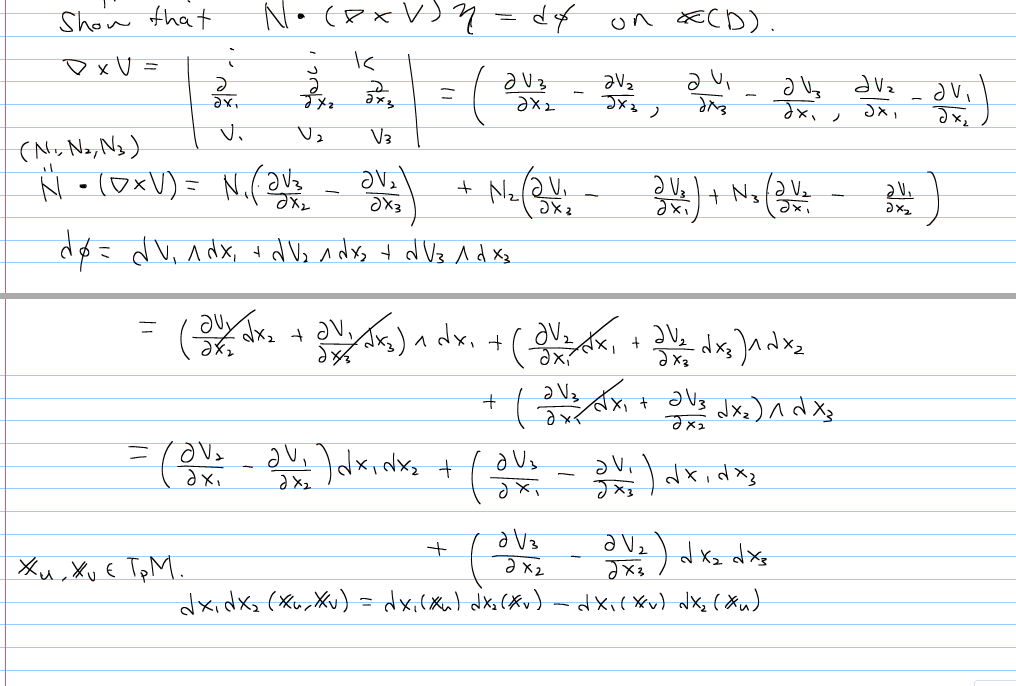 Show that N · (∇ × V) η = dφ on 𝕏(D).
∇ × V = | i j k ; ∂/∂x₁ ∂/∂x₂ ∂/∂x₃ ; V₁ V₂ V₃ | = ( ∂V₃/∂x₂ − ∂V₂/∂x₃ , ∂V₁/∂x₃ − ∂V₃/∂x₁ , ∂V₂/∂x₁ − ∂V₁/∂x₂ )
(N₁, N₂, N₃)
"
N · (∇×V) = N₁( ∂V₃/∂x₂ − ∂V₂/∂x₃ ) + N₂( ∂V₁/∂x₃ − ∂V₃/∂x₁ ) + N₃( ∂V₂/∂x₁ − ∂V₁/∂x₂ )
dφ = dV₁ ∧ dx₁ + dV₂ ∧ dx₂ + dV₃ ∧ dx₃
= ( ∂V₁/∂x₂ dx₂ + ∂V₁/∂x₃ dx₃ ) ∧ dx₁ + ( ∂V₂/∂x₁ dx₁ + ∂V₂/∂x₃ dx₃ ) ∧ dx₂
+ ( ∂V₃/∂x₁ dx₁ + ∂V₃/∂x₂ dx₂ ) ∧ dx₃
= ( ∂V₂/∂x₁ − ∂V₁/∂x₂ ) dx₁dx₂ + ( ∂V₃/∂x₁ − ∂V₁/∂x₃ ) dx₁dx₃
+ ( ∂V₃/∂x₂ − ∂V₂/∂x₃ ) dx₂ dx₃
𝕏u, 𝕏v ∈ TpM.
dx₁dx₂ (𝕏u, 𝕏v) = dx₁(𝕏u) dx₂(𝕏v) − dx₁(𝕏v) dx₂(𝕏u)